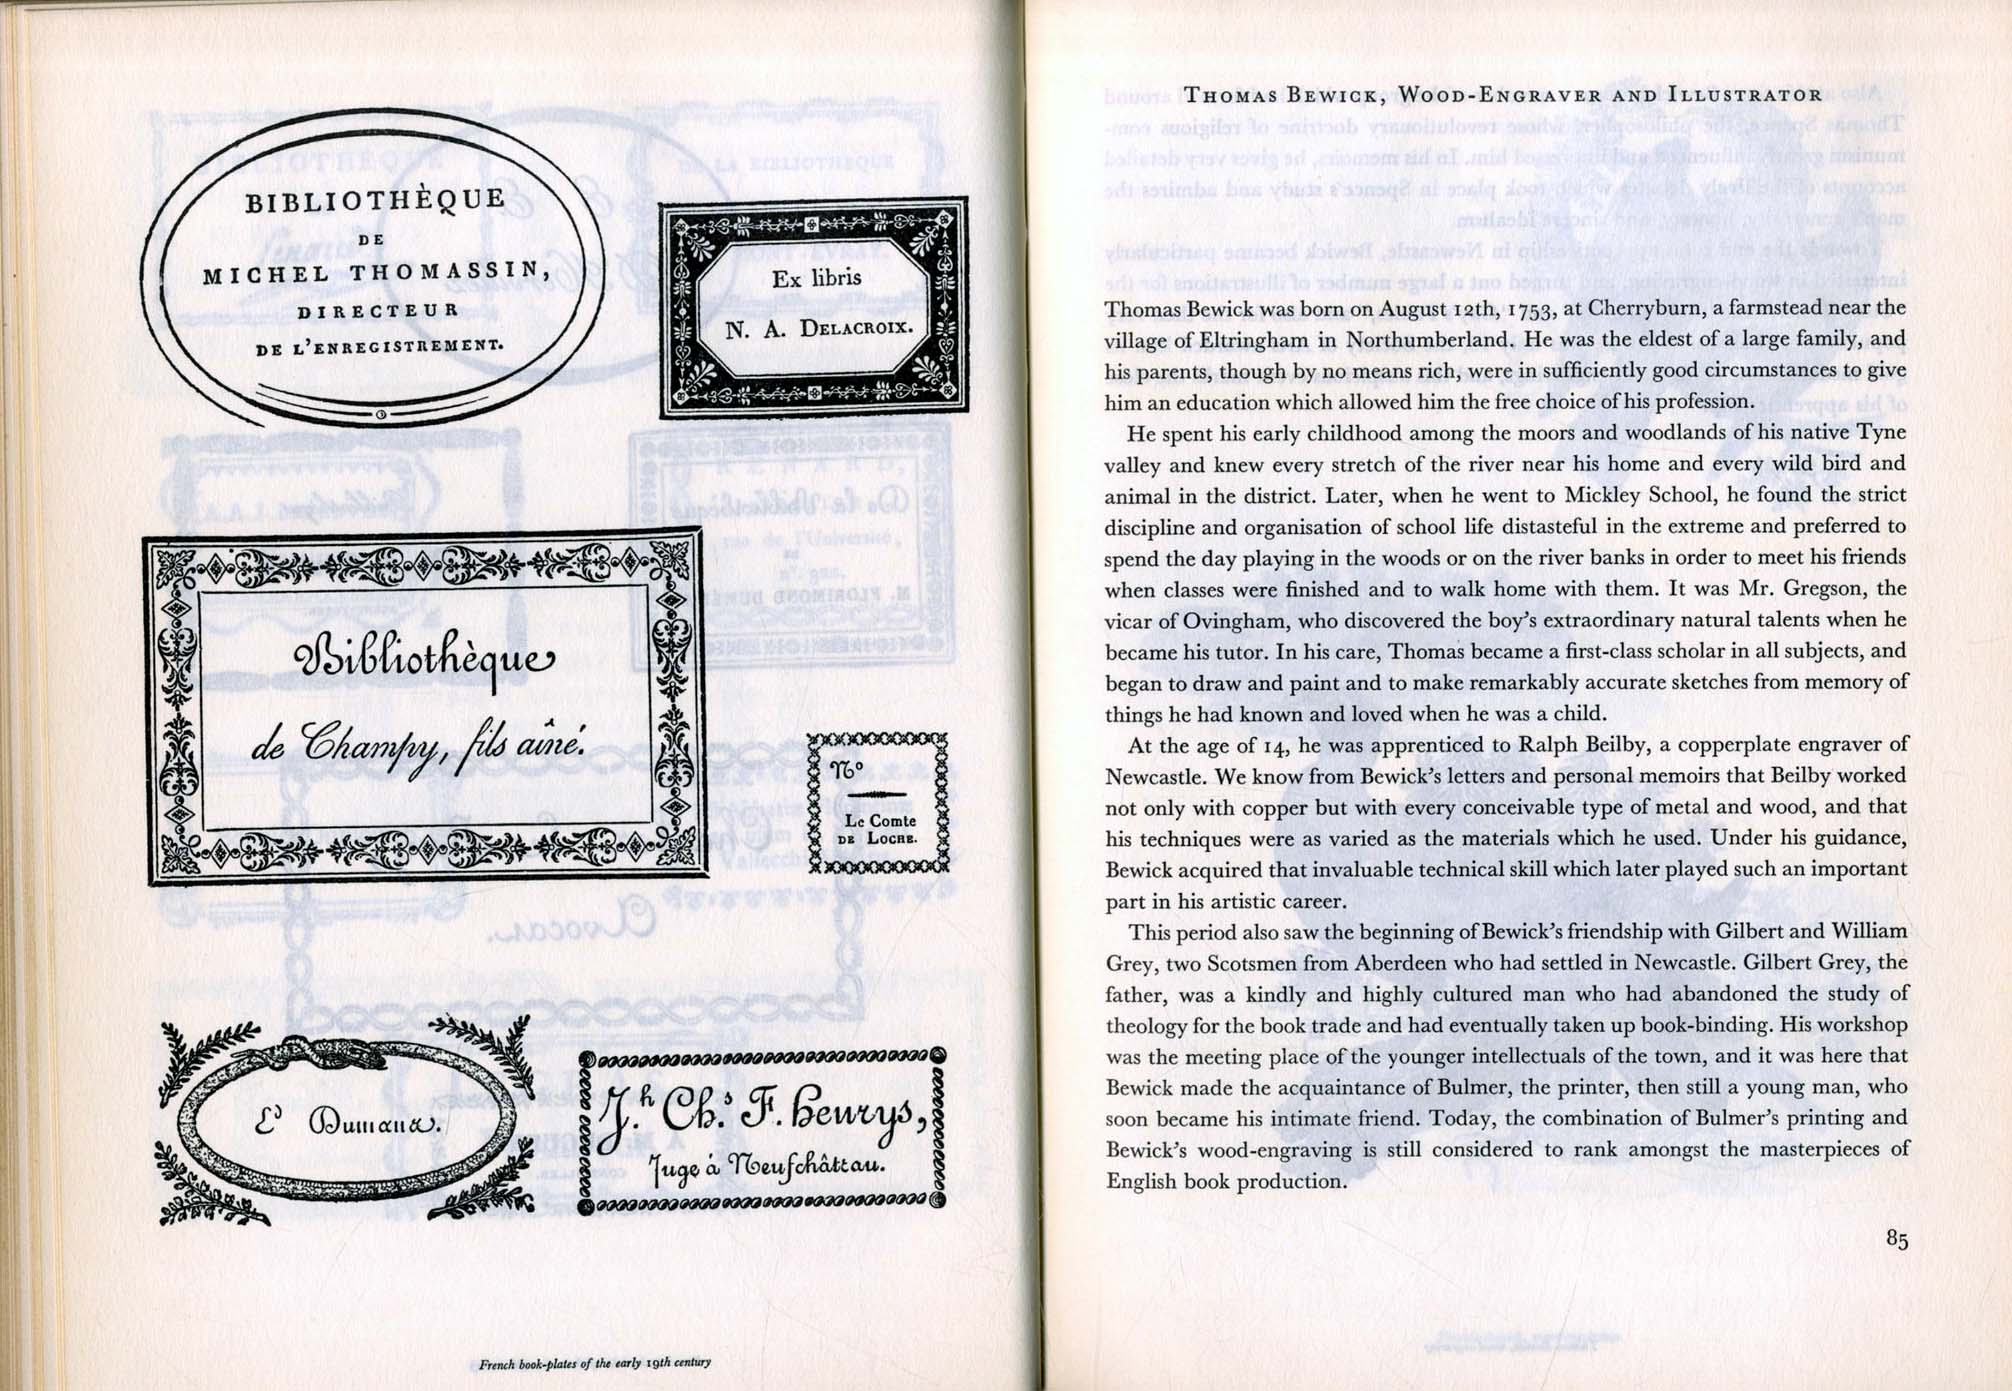 BIBLIOTHÈQUE
DE
MICHEL THOMASSIN,
DIRECTEUR
DE L'ENREGISTREMENT.
Ex libris
N. A. DELACROIX.
Bibliothèque
de Champy, fils aîné.
No
Le Comte
DE LOCRE.
Dumans.
J.h Ch.s F. henrys,
Juge à Neufchâteau.
French book-plates of the early 19th century
THOMAS BEWICK, WOOD-ENGRAVER AND ILLUSTRATOR
Thomas Bewick was born on August 12th, 1753, at Cherryburn, a farmstead near the
village of Eltringham in Northumberland. He was the eldest of a large family, and
his parents, though by no means rich, were in sufficiently good circumstances to give
him an education which allowed him the free choice of his profession.
He spent his early childhood among the moors and woodlands of his native Tyne
valley and knew every stretch of the river near his home and every wild bird and
animal in the district. Later, when he went to Mickley School, he found the strict
discipline and organisation of school life distasteful in the extreme and preferred to
spend the day playing in the woods or on the river banks in order to meet his friends
when classes were finished and to walk home with them. It was Mr. Gregson, the
vicar of Ovingham, who discovered the boy's extraordinary natural talents when he
became his tutor. In his care, Thomas became a first-class scholar in all subjects, and
began to draw and paint and to make remarkably accurate sketches from memory of
things he had known and loved when he was a child.
At the age of 14, he was apprenticed to Ralph Beilby, a copperplate engraver of
Newcastle. We know from Bewick's letters and personal memoirs that Beilby worked
not only with copper but with every conceivable type of metal and wood, and that
his techniques were as varied as the materials which he used. Under his guidance,
Bewick acquired that invaluable technical skill which later played such an important
part in his artistic career.
This period also saw the beginning of Bewick's friendship with Gilbert and William
Grey, two Scotsmen from Aberdeen who had settled in Newcastle. Gilbert Grey, the
father, was a kindly and highly cultured man who had abandoned the study of
theology for the book trade and had eventually taken up book-binding. His workshop
was the meeting place of the younger intellectuals of the town, and it was here that
Bewick made the acquaintance of Bulmer, the printer, then still a young man, who
soon became his intimate friend. Today, the combination of Bulmer's printing and
Bewick's wood-engraving is still considered to rank amongst the masterpieces of
English book production.
85